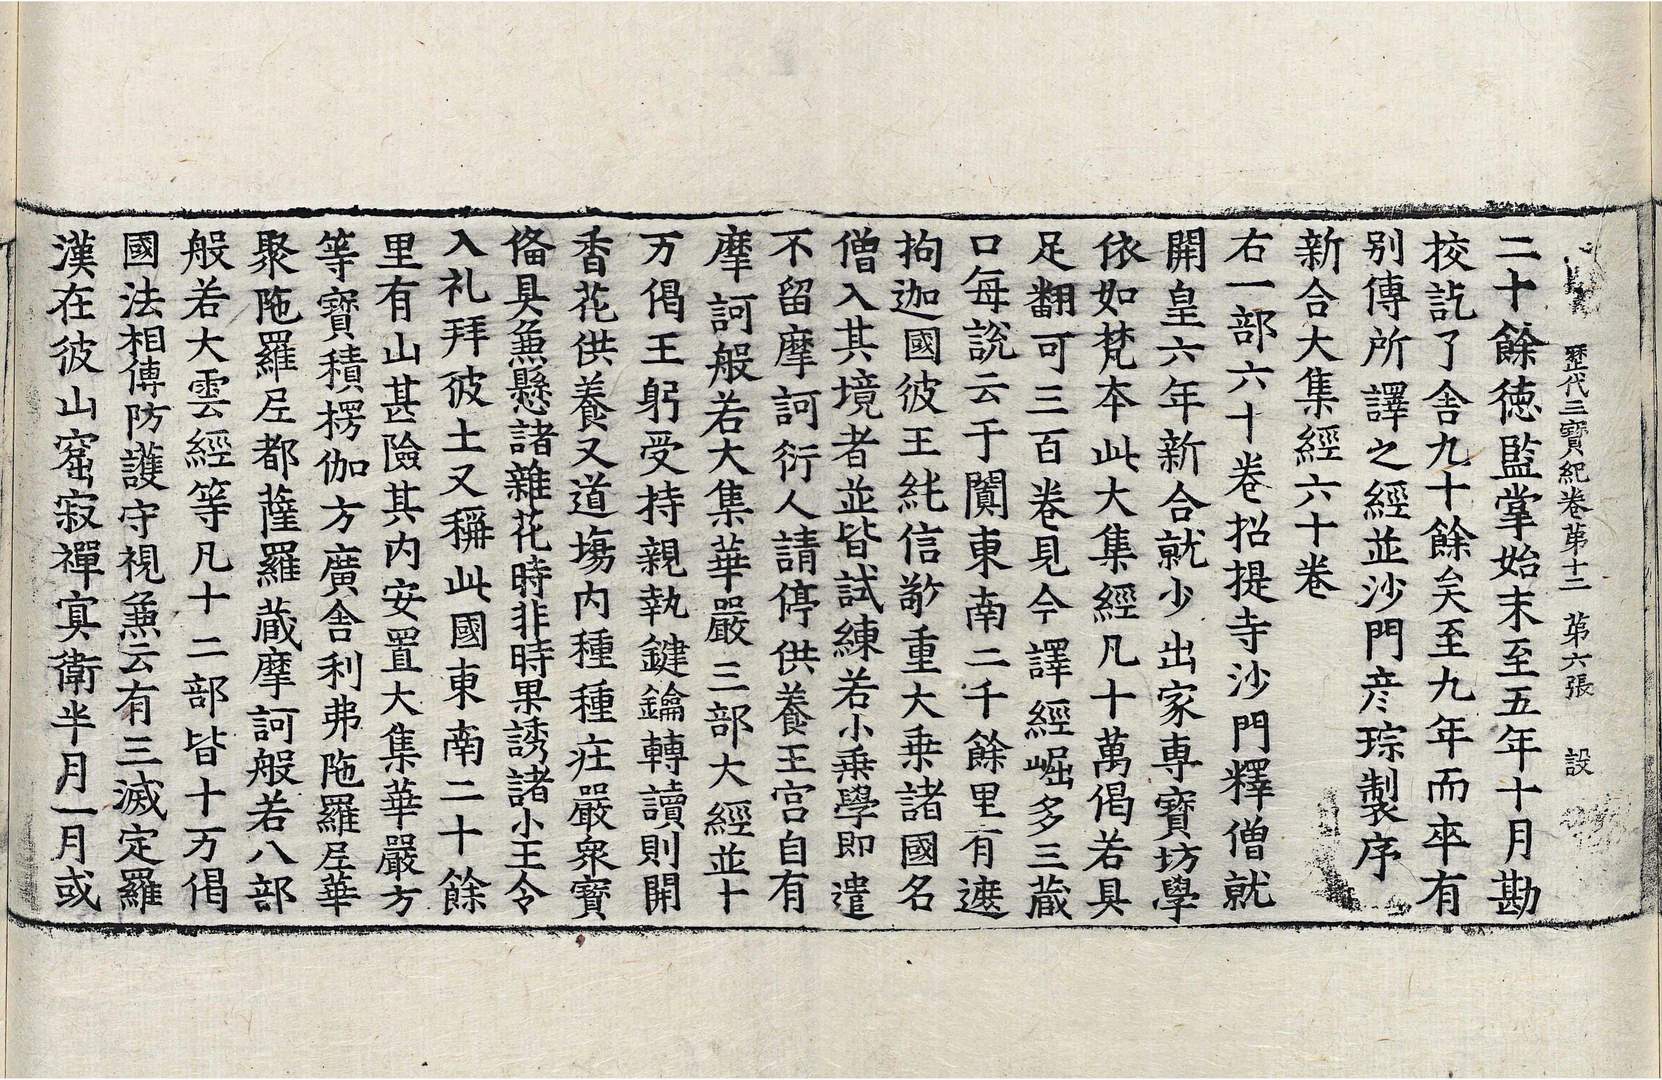 歷代三寶紀卷第十二 第六張 設
二十餘德監掌始末至五年十月勘
校訖了舍九十餘矣至九年而卒有
別傳所譯之經並沙門彦琮製序
新合大集經六十卷
右一部六十卷招提寺沙門釋僧就
開皇六年新合就少出家專寶坊學
依如梵本此大集經凡十萬偈若具
足翻可三百卷見今譯經崛多三藏
口每說云于闐東南二千餘里有遮
拘迦國彼王純信敬重大乗諸國名
僧入其境者並皆試練若小乗學即遣
不留摩訶衍人請停供養王宮自有
摩訶般若大集華嚴三部大經並十
万偈王躬受持親執鍵鑰轉讀則開
香花供養又道塲內種種莊嚴衆寶
俻具兼懸諸雜花時非時果誘諸小王令
入礼拜彼土又稱此國東南二十餘
里有山甚險其內安置大集華嚴方
等寶積楞伽方廣舍利弗陁羅𡰱華
聚陁羅𡰱都薩羅藏摩訶般若八部
般若大雲經等凡十二部皆十万偈
國法相傳防護守視兼云有三滅定羅
漢在彼山窟寂禪㝠衛半月一月或